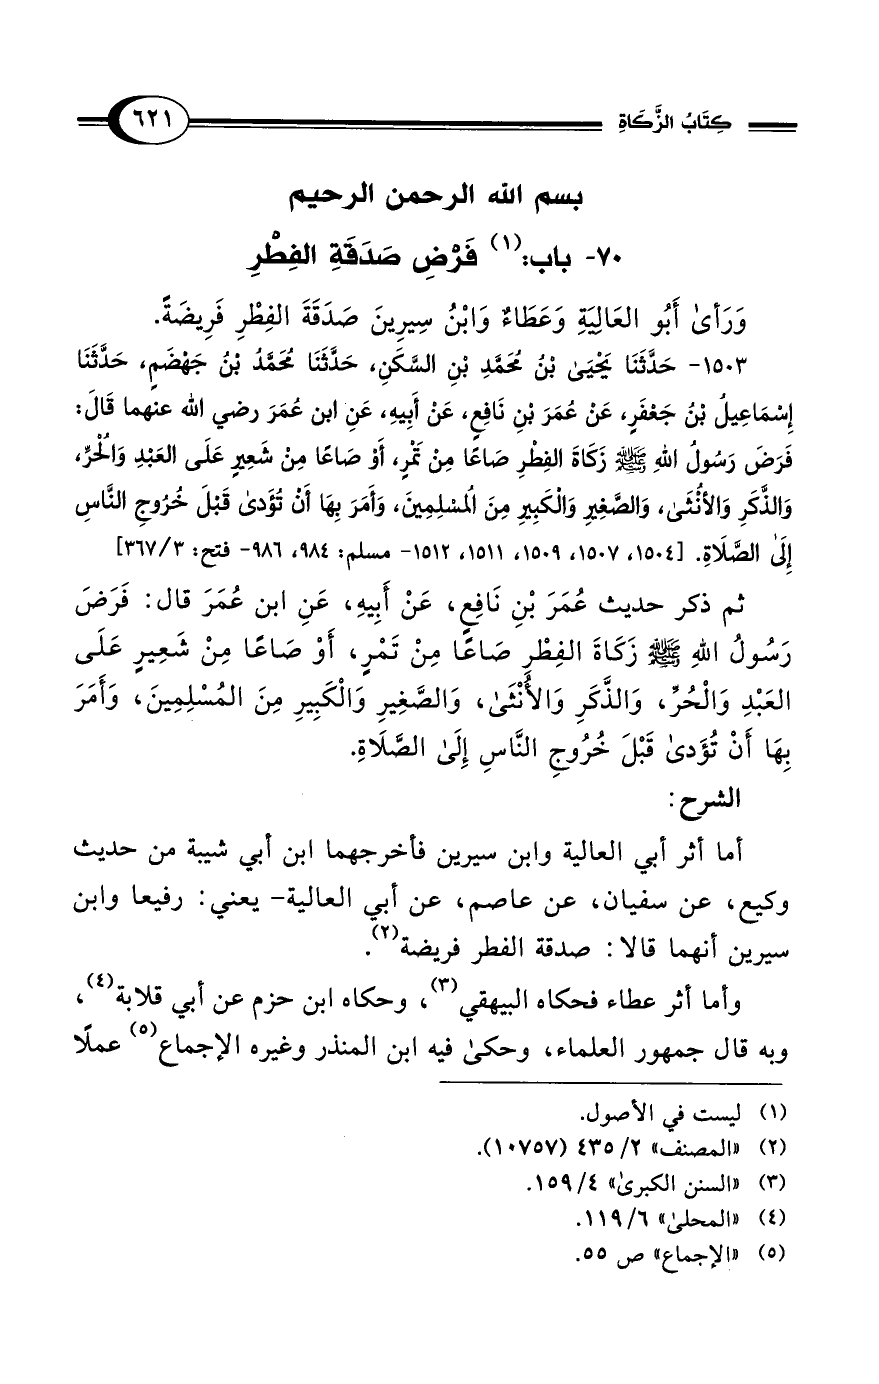 كِتَابُ الزَّكَاةِ ٦٢١
بسم الله الرحمن الرحيم
٧٠- باب:(١) فَرْضِ صَدَقَةِ الفِطْرِ
وَرَأىٰ أَبُو العَالِيَةِ وَعَطَاءٌ وَابْنُ سِيرِينَ صَدَقَةَ الفِطْرِ فَرِيضَةً.
١٥٠٣- حَدَّثَنَا يَحْيَىٰ بْنُ مُحَمَّدِ بْنِ السَّكَنِ، حَدَّثَنَا مُحَمَّدُ بْنُ جَهْضَمٍ، حَدَّثَنَا
إِسْمَاعِيلُ بْنُ جَعْفَرٍ، عَنْ عُمَرَ بْنِ نَافِعٍ، عَنْ أَبِيهِ، عَنِ ابن عُمَرَ رضي الله عنهما قَالَ:
فَرَضَ رَسُولُ اللهِ ﷺ زَكَاةَ الفِطْرِ صَاعًا مِنْ تَمْرٍ، أَوْ صَاعًا مِنْ شَعِيرٍ عَلَى العَبْدِ وَالْحُرِّ،
وَالذَّكَرِ وَالأُنْثَىٰ، وَالصَّغِيرِ وَالْكَبِيرِ مِنَ الْمُسْلِمِينَ، وَأَمَرَ بِهَا أَنْ تُؤَدىٰ قَبْلَ خُرُوجِ النَّاسِ
إِلَىٰ الصَّلَاةِ. [١٥٠٤، ١٥٠٧، ١٥٠٩، ١٥١١، ١٥١٢- مسلم: ٩٨٤، ٩٨٦- فتح: ٣/ ٣٦٧]
ثم ذكر حديث عُمَرَ بْنِ نَافِعٍ، عَنْ أَبِيهِ، عَنِ ابن عُمَرَ قال: فَرَضَ
رَسُولُ اللهِ ﷺ زَكَاةَ الفِطْرِ صَاعًا مِنْ تَمْرٍ، أَوْ صَاعًا مِنْ شَعِيرٍ عَلَى
العَبْدِ وَالْحُرِّ، وَالذَّكَرِ وَالأُنْثَىٰ، وَالصَّغِيرِ وَالْكَبِيرِ مِنَ المُسْلِمِينَ، وَأَمَرَ
بِهَا أَنْ تُؤَدىٰ قَبْلَ خُرُوجِ النَّاسِ إِلَىٰ الصَّلَاةِ.
الشرح:
أما أثر أبي العالية وابن سيرين فأخرجهما ابن أبي شيبة من حديث
وكيع، عن سفيان، عن عاصم، عن أبي العالية- يعني: رفيعا وابن
سيرين أنهما قالا: صدقة الفطر فريضة(٢).
وأما أثر عطاء فحكاه البيهقي(٣)، وحكاه ابن حزم عن أبي قلابة(٤)،
وبه قال جمهور العلماء، وحكىٰ فيه ابن المنذر وغيره الإجماع(٥) عملًا
(١) ليست في الأصول.
(٢) «المصنف» ٢/ ٤٣٥ (١٠٧٥٧).
(٣) «السنن الكبرىٰ» ٤/ ١٥٩.
(٤) «المحلىٰ» ٦/ ١١٩.
(٥) «الإجماع» ص ٥٥.